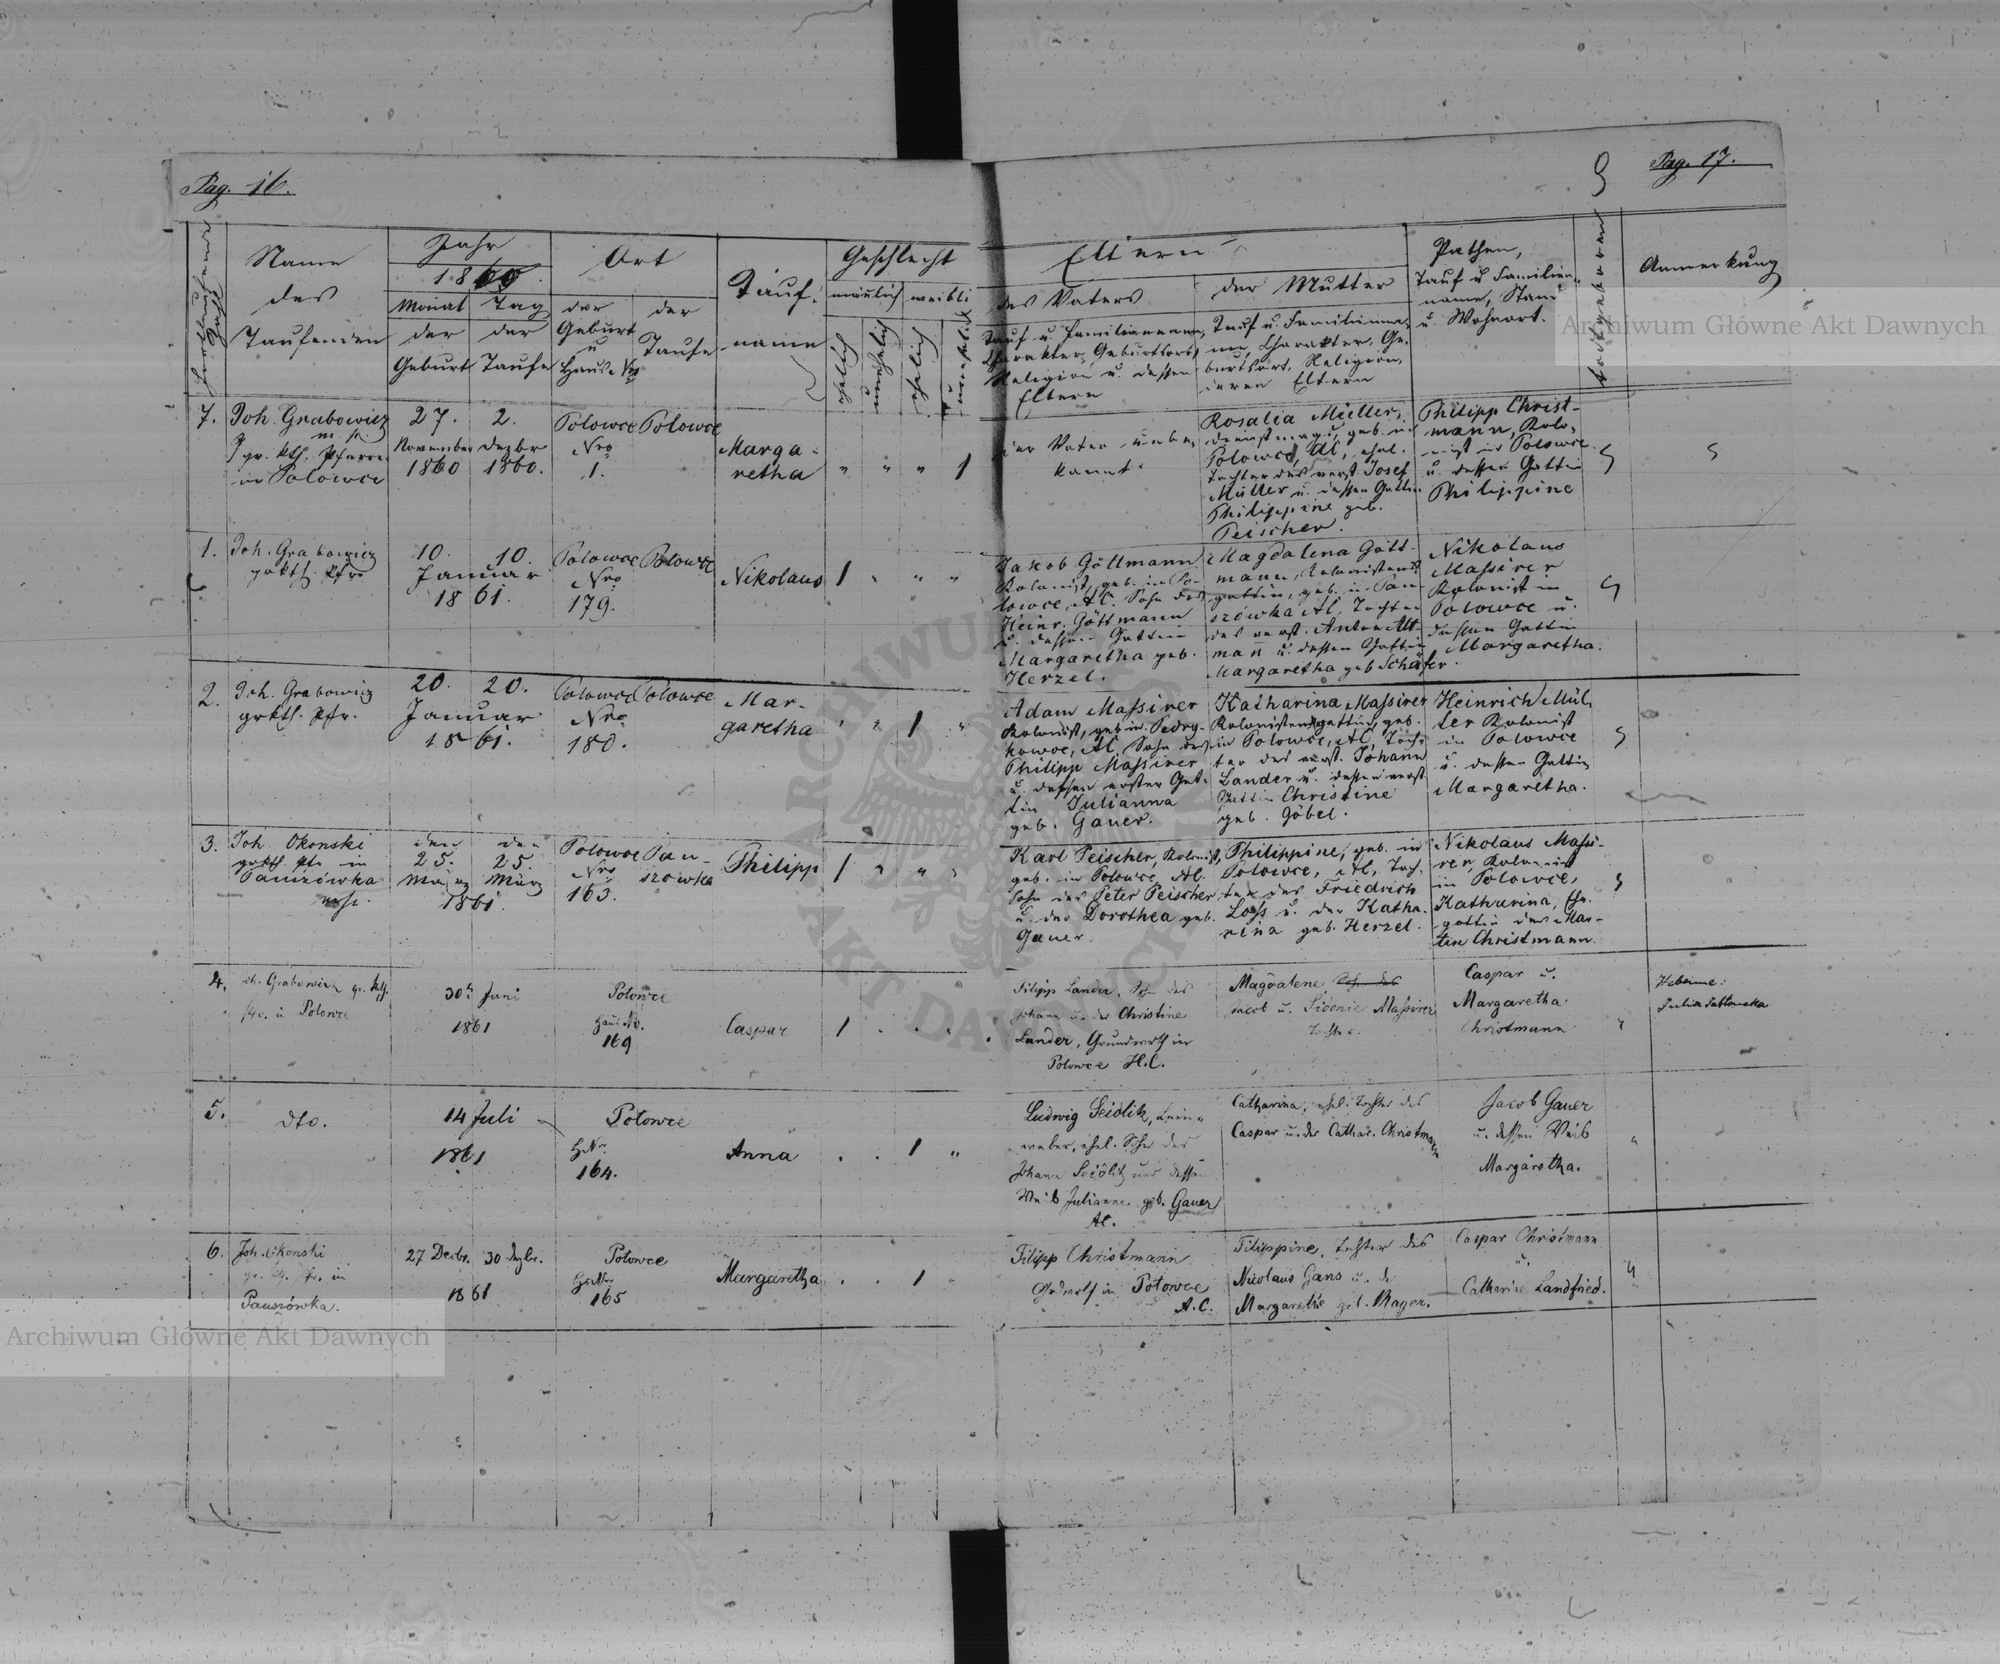 Pag. 16.
Pag. 17.
9
Fortlaufende Zahl
Name
des
Taufenden
Jahr
1860
Monat
der
Geburt
Tag
der
Taufe
Ort
der
Geburt
u
Haus-Nro
der
Taufe
Tauf-
name
Geschlecht
mänlich
weibli
ehelich
unehelich
ehelich
unehelich
Eltern
des Vaters
Tauf u. Familienname,
Charakter, Geburtsort,
Religion u. dessen
Eltern
der Mutter
Tauf u. Familienna-
me, Charakter, Ge-
burtsort, Religion,
deren Eltern
Pathen,
Tauf u Familien-
name, Stand
u. Wohnort.
todtgeboren
Anmerkung
7.
Joh. Grabowicz
m. p.
gr. kth. Pfarrer
in Polowce
27.
November
1860
2.
Dezbr
1860.
Polowce
Nro
1.
Polowce
Marga-
retha
" " " 1
der Vater unbe-
kannt.
Rosalia Müller,
Dienstmagd, geb. in
Polowce, AC, ehel.
Tochter des verst. Josef
Müller u. dessen Gattin
Philippine geb.
Peischer.
Philipp Christ-
mann, Kolo-
nist in Polowce
u. dessen Gattin
Philippine
1.
Joh. Grabowicz
grkth. Pfr
10. 10.
Januar
1861.
Polowce
Nro
179.
Polowce
Nikolaus
1 " " "
Jakob Göttmann
Kolonist, geb. in Po-
lowce, AC. Sohn des
Heinr. Göttmann
u. dessen Gattin
Margaretha geb.
Herzel.
Magdalena Gött-
mann, Kolonistens
gattin, geb. in Pau-
szówka AC, Tochter
des verst. Anton Alt-
man u. dessen Gattin
Margaretha geb Schäfer.
Nikolaus
Massirer
Kolonist in
Polowce u.
dessen Gattin
Margaretha.
2.
Joh. Grabowicz
grkth. Pfr.
20. 20.
Januar
1861.
Polowce
Nro
180.
Polowce
Mar-
garetha
" " 1 "
Adam Massirer
Kolonist, geb in Pedry-
kowce, AC, Sohn des
Philipp Massirer
u. dessen erster Gat-
tin Julianna
geb. Gauer.
Katharina Massirer
Kolonistensgattin, geb.
in Polowce, AC, Toch-
ter des verst. Johann
Lander u. dessen verst
Gattin Christine
geb. Göbel.
Heinrich Mül-
ler Kolonist
in Polowce
u. dessen Gattin
Margaretha.
3.
Joh Okonski
grkth. Pfr in
Pauszówka
den
25.
März
den
25
März
1861.
Polowce
Nro
163.
Pau-
szowka
Philipp
1 " " "
Karl Peischer, Kolonist,
geb. in Polowce, AC.
Sohn des Peter Peischer
u. der Dorothea geb.
Gauer.
Philippine, geb. in
Polowce, AC, Toch-
ter des Friedrich
Loss u. der Katha-
rina geb. Herzel.
Nikolaus Massi-
rer, Kolonist
in Polowce,
Katharina, Ehe-
gattin des Mar-
tin Christmann
4.
Joh. Grabowicz gr. kth.
Pfr. in Polowce
30t Juni
1861
Polowce
Haus No.
169
Caspar
1 . . "
Filipp Lander, Sohn des
Johann u. der Christine
Lander, Grundwirth in
Polowce H.C.
Magdalene Sohn des
Jacob u. Sidonie Massirer
Tochter.
Caspar u.
Margaretha
Christmann
"
Hebamme:
Julia
5.
dto.
14 Juli
1861
Polowce
HNr.
164.
Anna
. . 1 "
Ludwig Seidlitz, Lein-
weber, ehel. Sohn des
Johann Seidlitz und dessen
Weib Julianna geb. Gauer
AC.
Catharina, ehel. Tochter des
Caspar u. der Cathar. Christmann
Jacob Gauer
u. dessen Weib
Margaretha.
"
6.
Joh. Okonski
gr. kth. Pfr. in
Pauszówka.
27 Decbr. 30 Dezbr.
1861
Polowce
HsNr.
165
Margaretha
. . 1 "
Filipp Christmann
Grdwirth in Polowce
A.C.
Filippine, Tochter des
Nicolaus Gans u. d
Margarethe geb. Mayer.
Caspar Christmann
u.
Catharine Landfried.
"
Archiwum Główne Akt Dawnych
Archiwum Główne Akt Dawnych
ARCHIWUM
AKT DAWNYCH